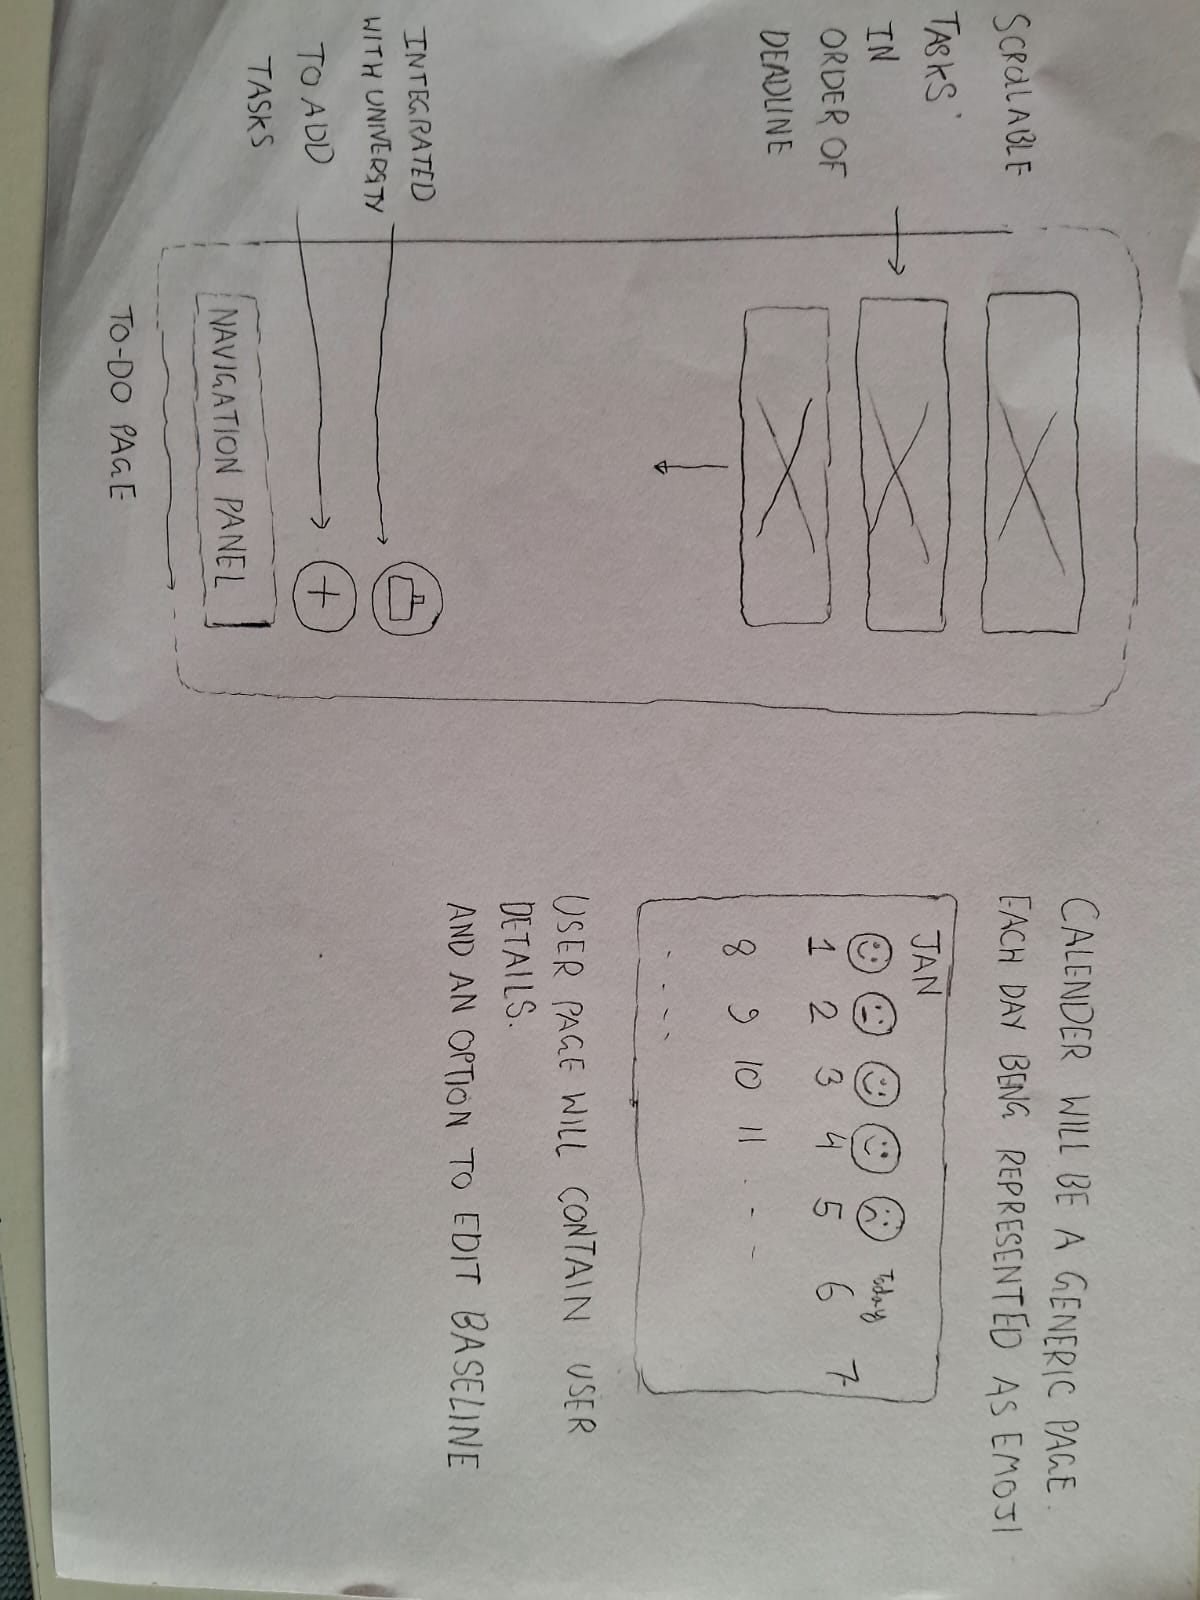 SCROLABLE
TASKS
IN
ORDER OF
DEADLINE
INTEGRATED
WITH UNIVERSITY
TO ADD
TASKS
+
NAVIGATION PANEL
TO-DO PAGE
CALENDER WILL BE A GENERIC PAGE.
EACH DAY BEING REPRESENTED AS EMOJI
JAN
Today
1 2 3 4 5 6 7
8 9 10 11 . - -
USER PAGE WILL CONTAIN USER
DETAILS.
AND AN OPTION TO EDIT BASELINE